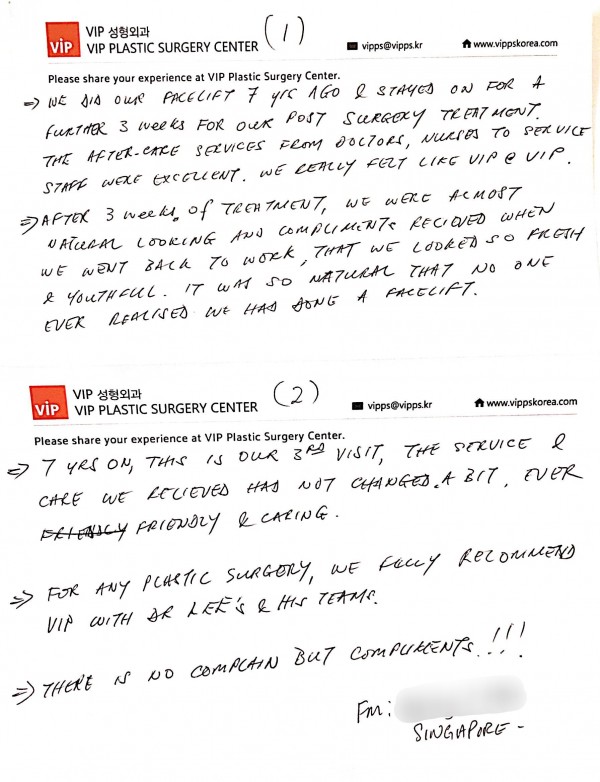 VIP 성형외과 (1)
ViP VIP PLASTIC SURGERY CENTER vipps@vipps.kr www.vippskorea.com
Please share your experience at VIP Plastic Surgery Center.
⇒ WE DID OUR FACELIFT 7 YRS AGO & STAYED ON FOR A
FURTHER 3 WEEKS FOR OUR POST SURGERY TREATMENT.
THE AFTER-CARE SERVICES FROM DOCTORS, NURSES TO SERVICE
STAFF WERE EXCELLENT. WE REALLY FELT LIKE VIP @ VIP.
⇒ AFTER 3 WEEKS. OF TREATMENT, WE WERE ALMOST
NATURAL LOOKING AND COMPLIMENTS RECIEVED WHEN
WE WENT BACK TO WORK, THAT WE LOOKED SO FRESH
& YOUTHFUL. IT WAS SO NATURAL THAT NO ONE
EVER REALISED WE HAD DONE A FACELIFT.
VIP 성형외과 (2)
ViP VIP PLASTIC SURGERY CENTER vipps@vipps.kr www.vippskorea.com
Please share your experience at VIP Plastic Surgery Center.
⇒ 7 YRS ON, THIS IS OUR 3RD VISIT, THE SERVICE &
CARE WE RELIEVED HAD NOT CHANGED. A BIT. EVER
FRIENDLY FRIENDLY & CARING.
⇒ FOR ANY PLASTIC SURGERY, WE FULLY RECOMMEND
VIP WITH DR LEE'S & HIS TEAMS.
⇒ THERE IS NO COMPLAIN BUT COMPLIMENTS.!!!
FM:
SINGAPORE -